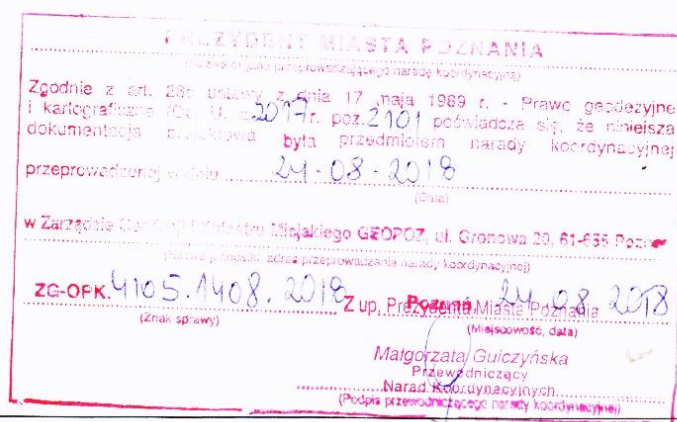 PREZYDENT MIASTA POZNANIA
(nazwa organu przeprowadzającego naradę koordynacyjną)
Zgodnie z art. 28b ustawy z dnia 17 maja 1989 r. - Prawo geodezyjne
i kartograficzne (Dz. U. z 2017 r. poz. 2101 poświadcza się, że niniejsza
dokumentacja projektowa była przedmiotem narady koordynacyjnej
przeprowadzonej w dniu 24-08-2018
(Data)
w Zarządzie Geodezji i Katastru Miejskiego GEOPOZ, ul. Gronowa 20, 61-655
adres przeprowadzania narady koordynacyjnej)
ZG-OPK.4105.1408.2018 Z up. Prezydenta Miasta Poznania Poznań 24.08.2018
(Znak sprawy) (Miejscowość, data)
Małgorzata Gulczyńska
Przewodniczący
Narad Koordynacyjnych
(Podpis przewodniczącego narady koordynacyjnej)